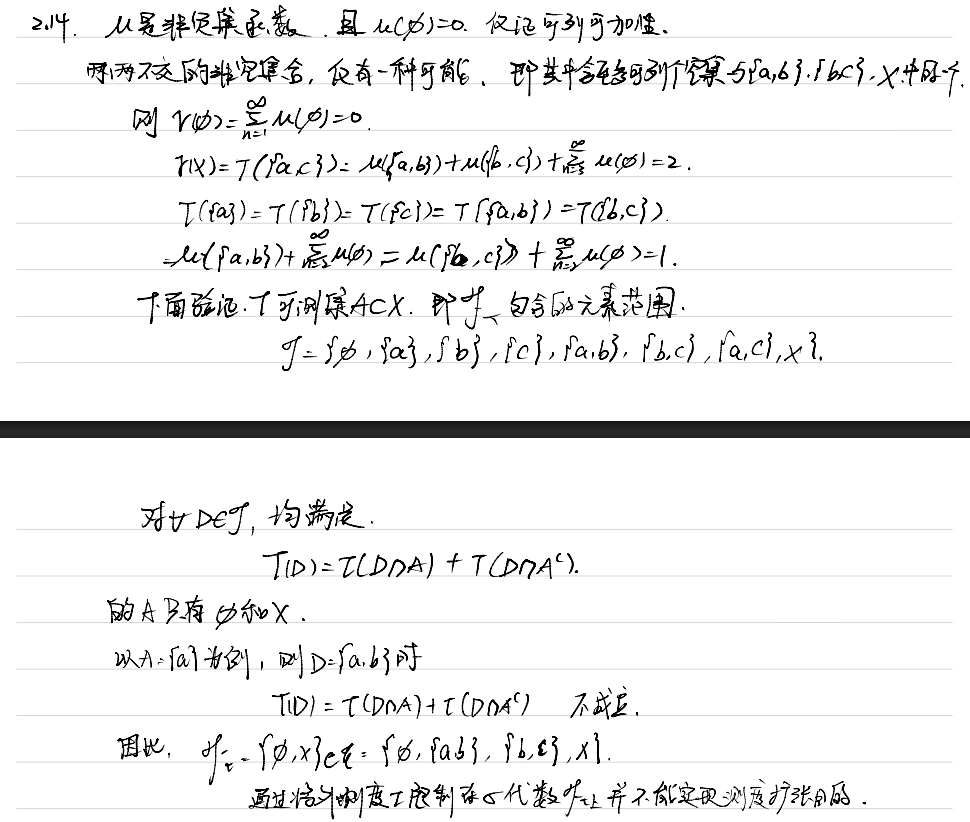 2.14. μ是非负集函数. 且 μ(∅)=0. 仅证可列可加性.
两两不交的非空集合, 仅有一种可能. 即其中含至多可列个空集与{a,b}.{b,c}.X中的一个.
则 τ(∅)=∑_{n=1}^∞ μ(∅)=0.
τ(X)=τ({a,c})=μ({a,b})+μ({b,c})+∑_{n=3}^∞ μ(∅)=2.
τ({a})=τ({b})=τ({c})=τ({a,b})=τ({b,c}).
=μ({a,b})+∑_{n=2}^∞ μ(∅)=μ({b,c})+∑_{n=2}^∞ μ(∅)=1.
下面验证.τ可测集A⊂X. 即 𝓕_τ 包含的元素范围.
𝒯={∅,{a},{b},{c},{a,b},{b,c},{a,c},X}.
对∀D∈𝒯, 均满足.
τ(D)=τ(D∩A)+τ(D∩A^c).
的A只有∅和X.
以A={a}为例, 则D={a,b}时
τ(D)=τ(D∩A)+τ(D∩A^c) 不成立.
因此. 𝓕_τ={∅,X}∈ℰ={∅,{a,b},{b,c},X}.
通过将外测度τ限制在σ代数𝓕_τ上并不能实现测度扩张目的.